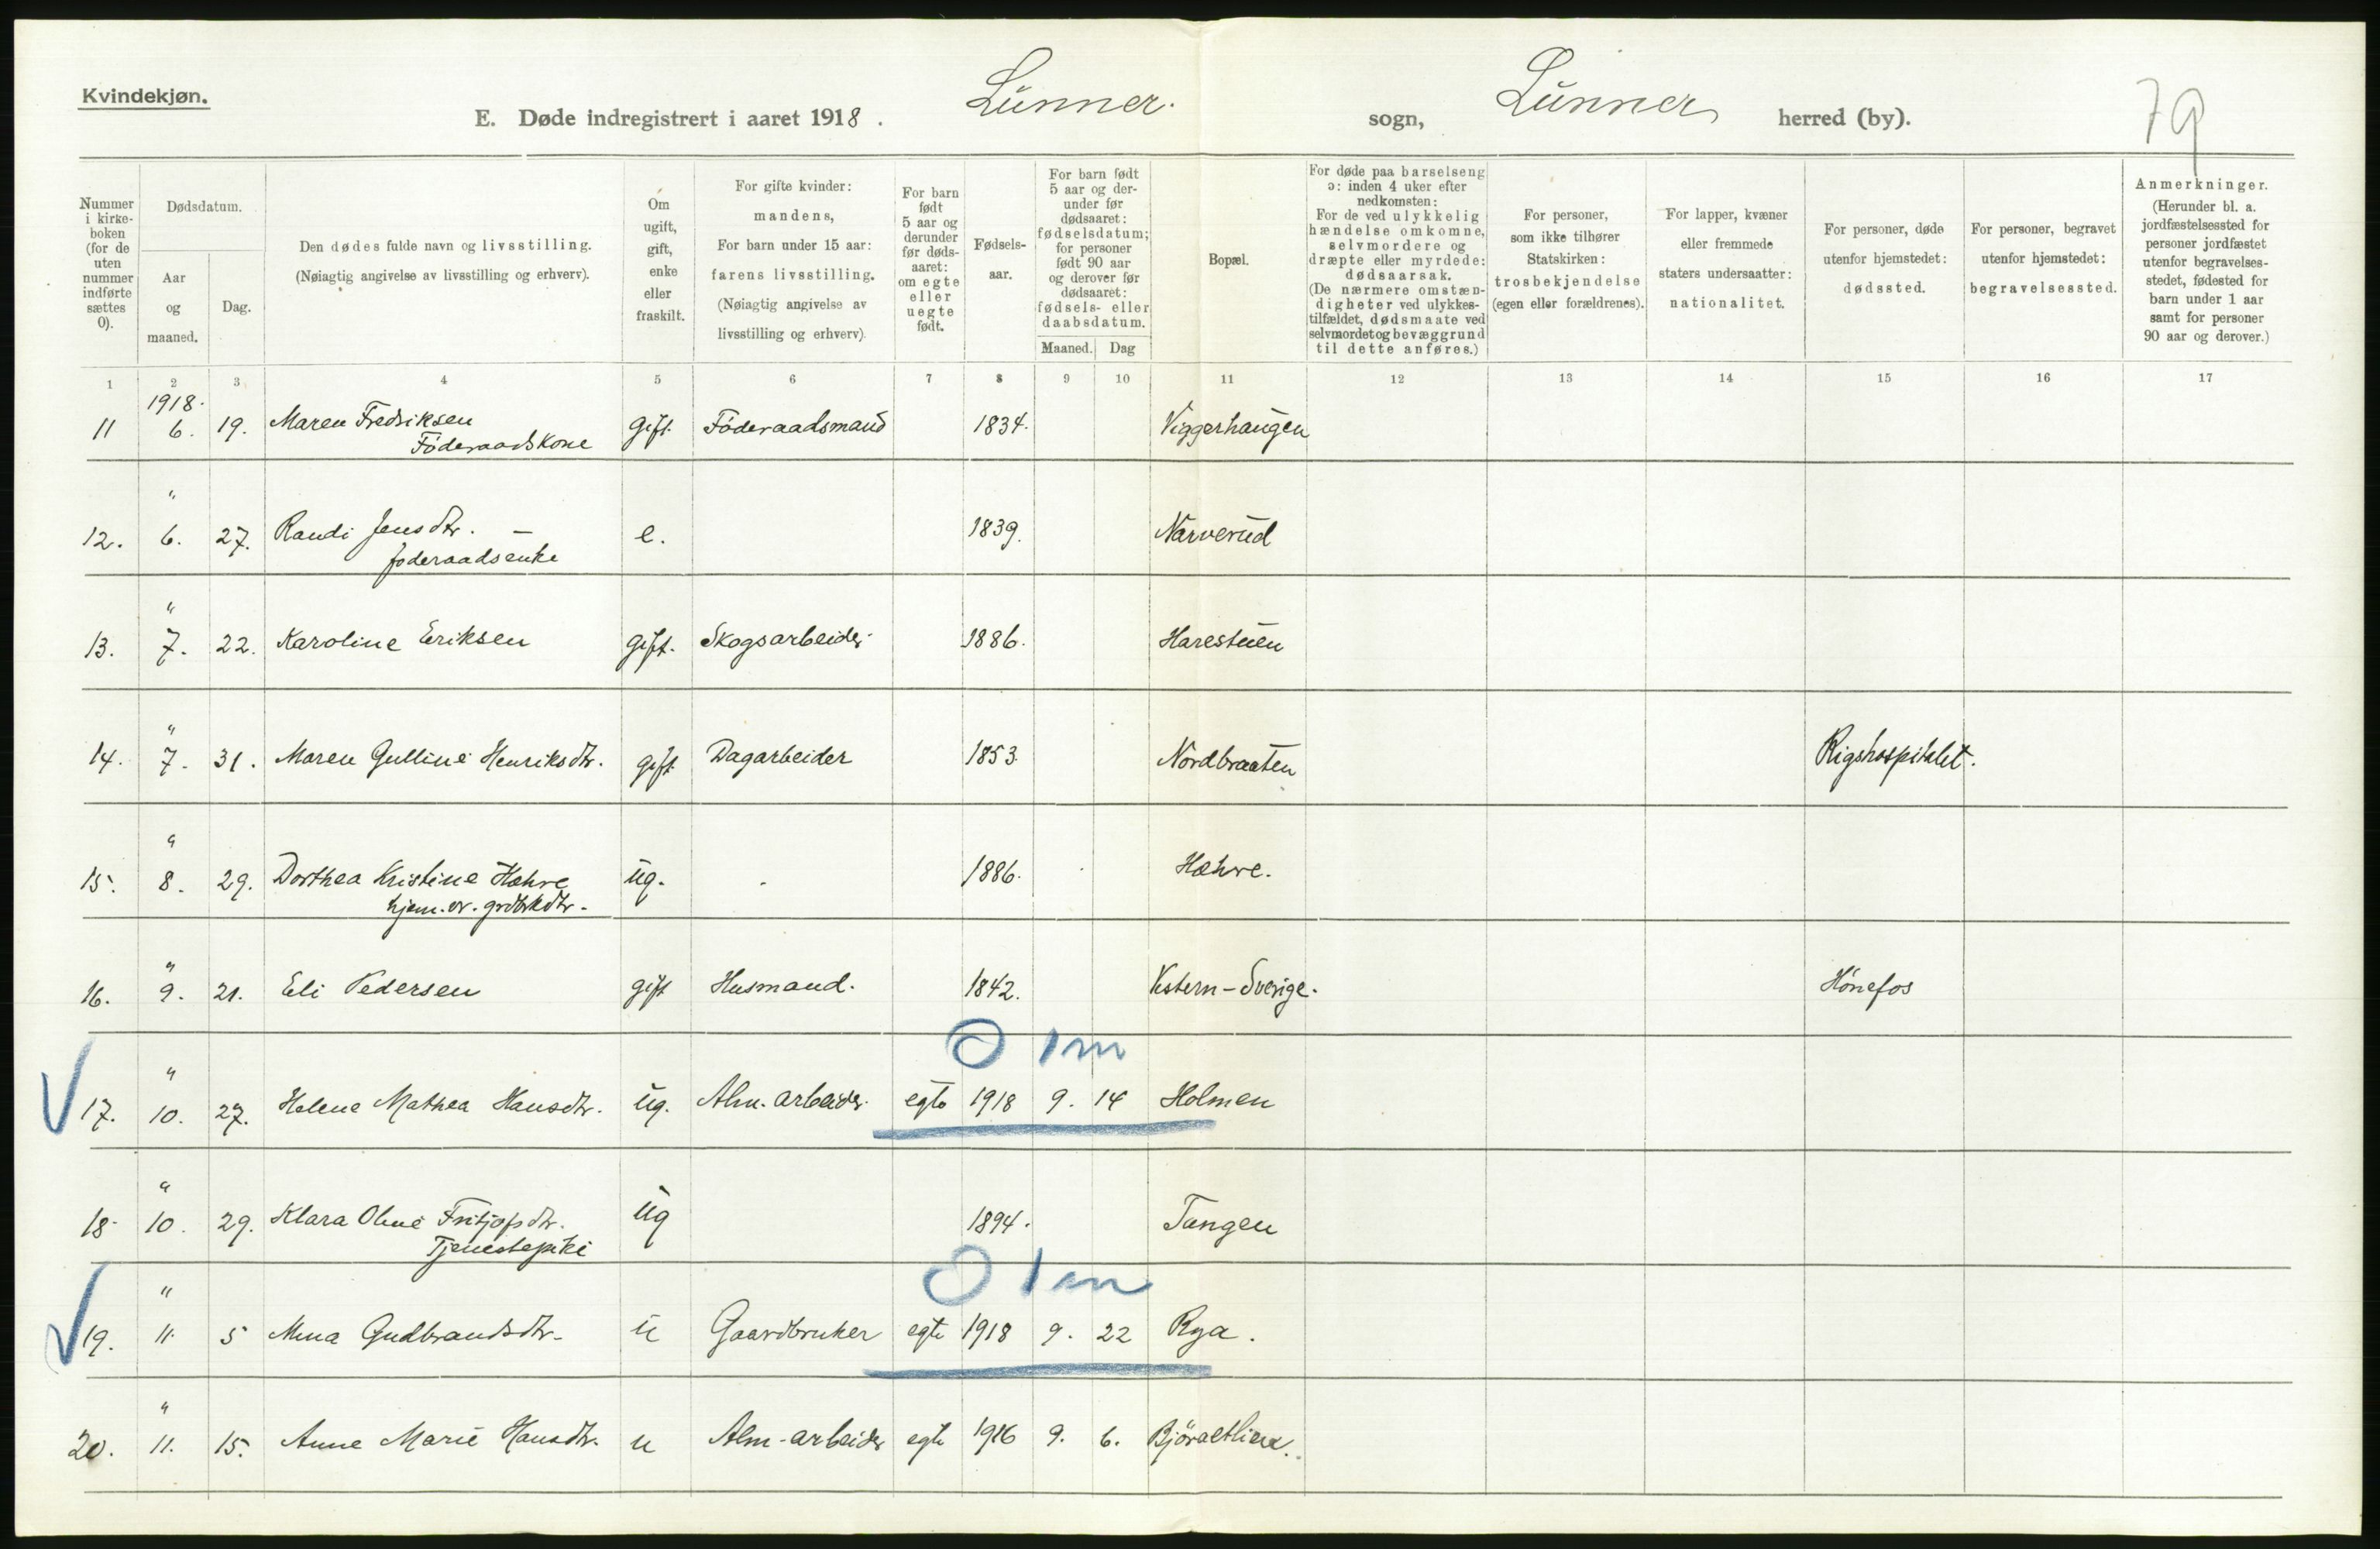 Kvindekjøn.
E. Døde indregistrert i aaret 1918. Lunner. sogn, Lunner herred (by). 79
Nummer i kirkeboken (for de uten nummer indførte sættes 0).
Dødsdatum.
Aar og maaned.
Dag.
Den dødes fulde navn og livsstilling.
(Nøiagtig angivelse av livsstilling og erhverv).
Om ugift, gift, enke eller fraskilt.
For gifte kvinder: mandens,
For barn under 15 aar: farens livsstilling.
(Nøiagtig angivelse av livsstilling og erhverv).
For barn født 5 aar og derunder før døds-aaret: om egte eller uegte født.
Fødsels-aar.
For barn født 5 aar og der-under før dødsaaret: fødselsdatum; for personer født 90 aar og derover før dødsaaret: fødsels- eller daabsdatum.
Maaned. Dag
Bopæl.
For døde paa barselseng ɔ: inden 4 uker efter nedkomsten:
For de ved ulykkelig hændelse omkomne, selvmordere og dræpte eller myrdede: dødsaarsak.
(De nærmere omstæn-digheter ved ulykkes-tilfældet, dødsmaate ved selvmordet og bevæggrund til dette anføres.)
For personer, som ikke tilhører Statskirken: trosbekjendelse (egen eller forældrenes).
For lapper, kvæner eller fremmede staters undersaatter: nationalitet.
For personer, døde utenfor hjemstedet: dødssted.
For personer, begravet utenfor hjemstedet: begravelsessted.
Anmerkninger.
(Herunder bl. a. jordfæstelsessted for personer jordfæstet utenfor begravelses-stedet, fødested for barn under 1 aar samt for personer 90 aar og derover.)
1 2 3 4 5 6 7 8 9 10 11 12 13 14 15 16 17
1918.
11 6. 19. Maren Fredriksen gift. Föderaadsmand 1834. Viggerhaugen
Föderaadskone
"
12. 6. 27. Randi Jensdtr. — e. 1839. Narverud
foderaadsenke
"
13. 7. 22. Karoline Eriksen gift. Skogsarbeider 1886. Harestuen
"
14. 7. 31. Maren Gulline Henriksdtr. gift Dagarbeider 1853. Nordbraaten Rigshospitalet.
"
15. 8. 29. Dorthea Kristine Hæhre ug. 1886. Hæhre.
"
16. 9. 21. Eli Pedersen gift Husmand. 1842. Vestern-Sverige. Hönefos
0 1 m
"
17. 10. 27. Helene Mathea Hansdtr. ug. Alm. arbeider egte 1918 9. 14 Holmen
"
18 10. 29. Klara Oline Fritjofsdtr. ug 1894. Tangen
Tjenestepike
0 1 m
"
19. 11. 5 Mina Gudbrandsdtr. u Gaardbruker egte 1918 9. 22 Rya.
"
20. 11. 15. Anne Marie Hansdtr. u Alm-arbeider egte 1916 9. 6.